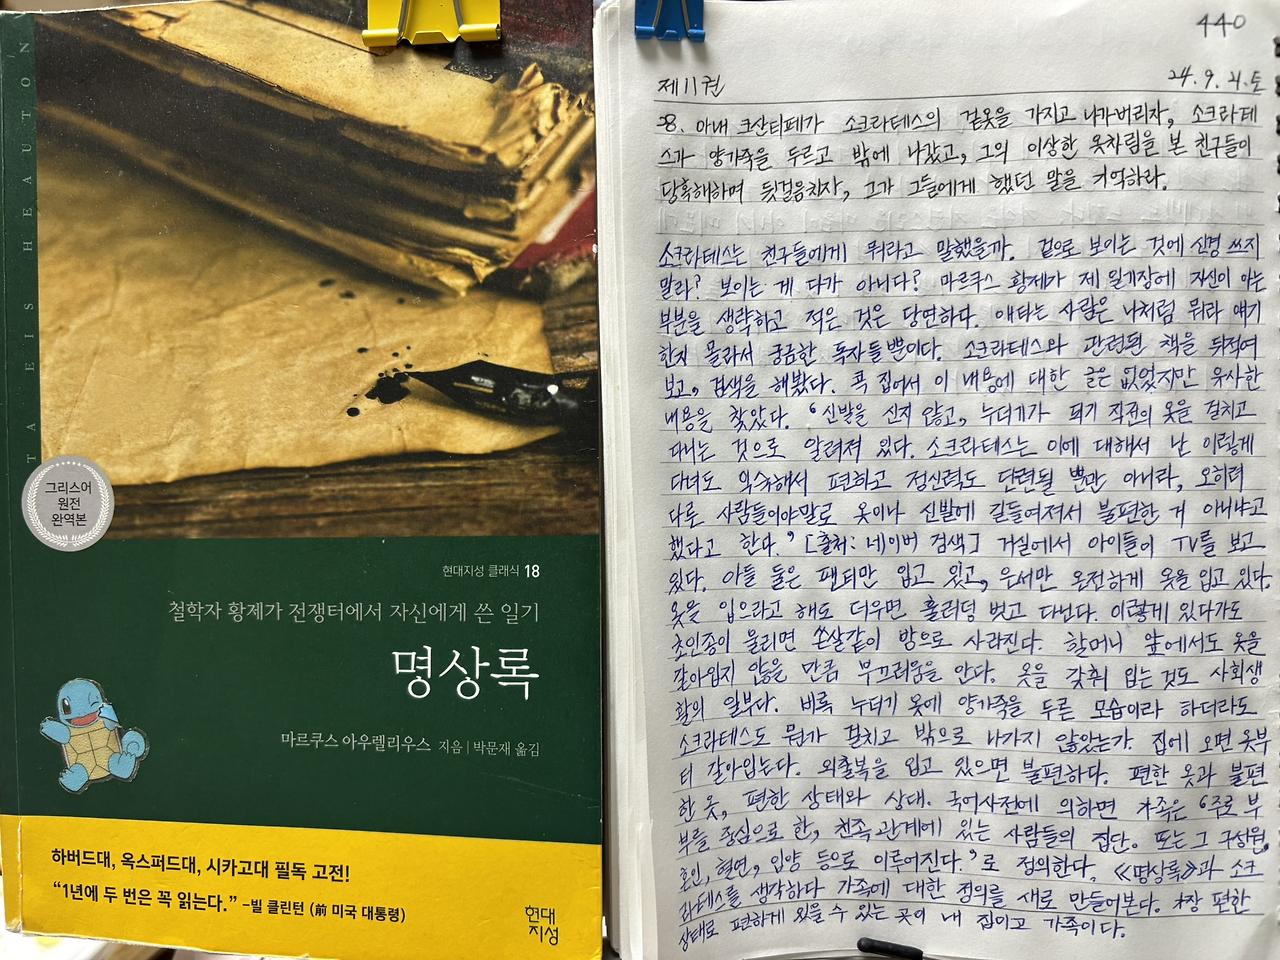 TA EIS HEAUTON
그리스어
원전
완역본
현대지성 클래식 18
철학자 황제가 전쟁터에서 자신에게 쓴 일기
명상록
마르쿠스 아우렐리우스 지음 | 박문재 옮김
하버드대, 옥스퍼드대, 시카고대 필독 고전!
“1년에 두 번은 꼭 읽는다.” –빌 클린턴 (前 미국 대통령)
현대
지성
440
제11권
24. 9. 21. 토
28. 아내 크산티페가 소크라테스의 겉옷을 가지고 나가버리자, 소크라테
스가 양가죽을 두르고 밖에 나갔고, 그의 이상한 옷차림을 본 친구들이
당혹해하며 뒷걸음치자, 그가 그들에게 했던 말을 기억하라.
소크라테스는 친구들에게 뭐라고 말했을까. 겉으로 보이는 것에 신경 쓰지
말라? 보이는 게 다가 아니다? 마르쿠스 황제가 제 일기장에 자신이 아는
부분을 생략하고 적은 것은 당연하다. 애타는 사람은 나처럼 뭐라 얘기
한지 몰라서 궁금한 독자들뿐이다. 소크라테스와 관련된 책을 뒤적여
보고, 검색을 해봤다. 콕 집어서 이 내용에 대한 글은 없었지만 유사한
내용을 찾았다. “신발을 신지 않고, 누더기가 되기 직전의 옷을 걸치고
다니는 것으로 알려져 있다. 소크라테스는 이에 대해서 난 이렇게
다녀도 익숙해서 편하고 정신력도 단련될 뿐만 아니라, 오히려
다른 사람들이야말로 옷이나 신발에 길들여져서 불편한 거 아니냐고
했다고 한다.” [출처: 네이버 검색] 거실에서 아이들이 TV를 보고
있다. 아들 둘은 팬티만 입고 있고, 은서만 온전하게 옷을 입고 있다.
옷을 입으라고 해도 더우면 훌러덩 벗고 다닌다. 이렇게 있다가도
초인종이 울리면 쏜살같이 방으로 사라진다. 할머니 앞에서도 옷을
갈아입지 않을 만큼 부끄러움을 안다. 옷을 갖춰 입는 것도 사회생
활의 일부다. 비록 누더기 옷에 양가죽을 두른 모습이라 하더라도
소크라테스도 뭔가 걸치고 밖으로 나가지 않았는가. 집에 오면 옷부
터 갈아입는다. 외출복을 입고 있으면 불편하다. 편한 옷과 불편
한 옷, 편한 상태와 상대. 국어사전에 의하면 가족은 “주로 부
부를 중심으로 한, 친족 관계에 있는 사람들의 집단. 또는 그 구성원.
혼인, 혈연, 입양 등으로 이루어진다.”로 정의한다. 《명상록》과 소크
라테스를 생각하다 가족에 대한 정의를 새로 만들어본다. 가장 편한
상태로 편하게 있을 수 있는 곳이 내 집이고 가족이다.